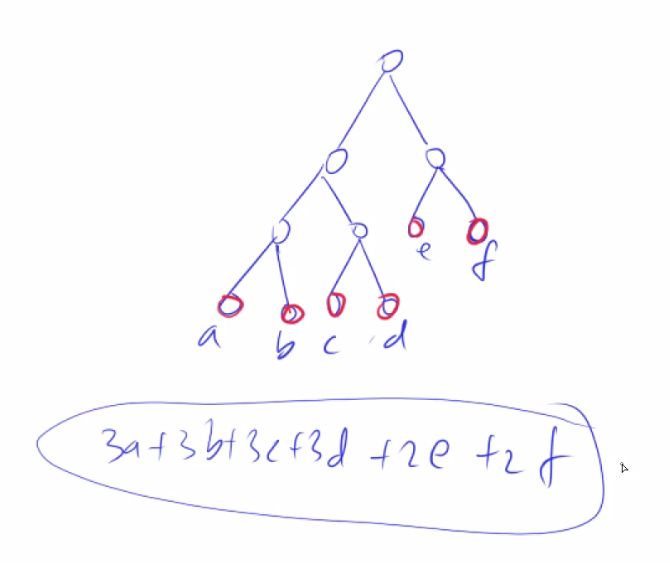 e f
a b c d
3a+3b+3c+3d +2e +2f